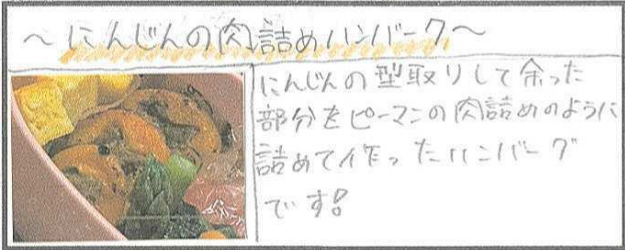 ～にんじんの肉詰めハンバーグ～
にんじんの型取りして余った
部分をピーマンの肉詰めのように
詰めて作ったハンバーグ
です!